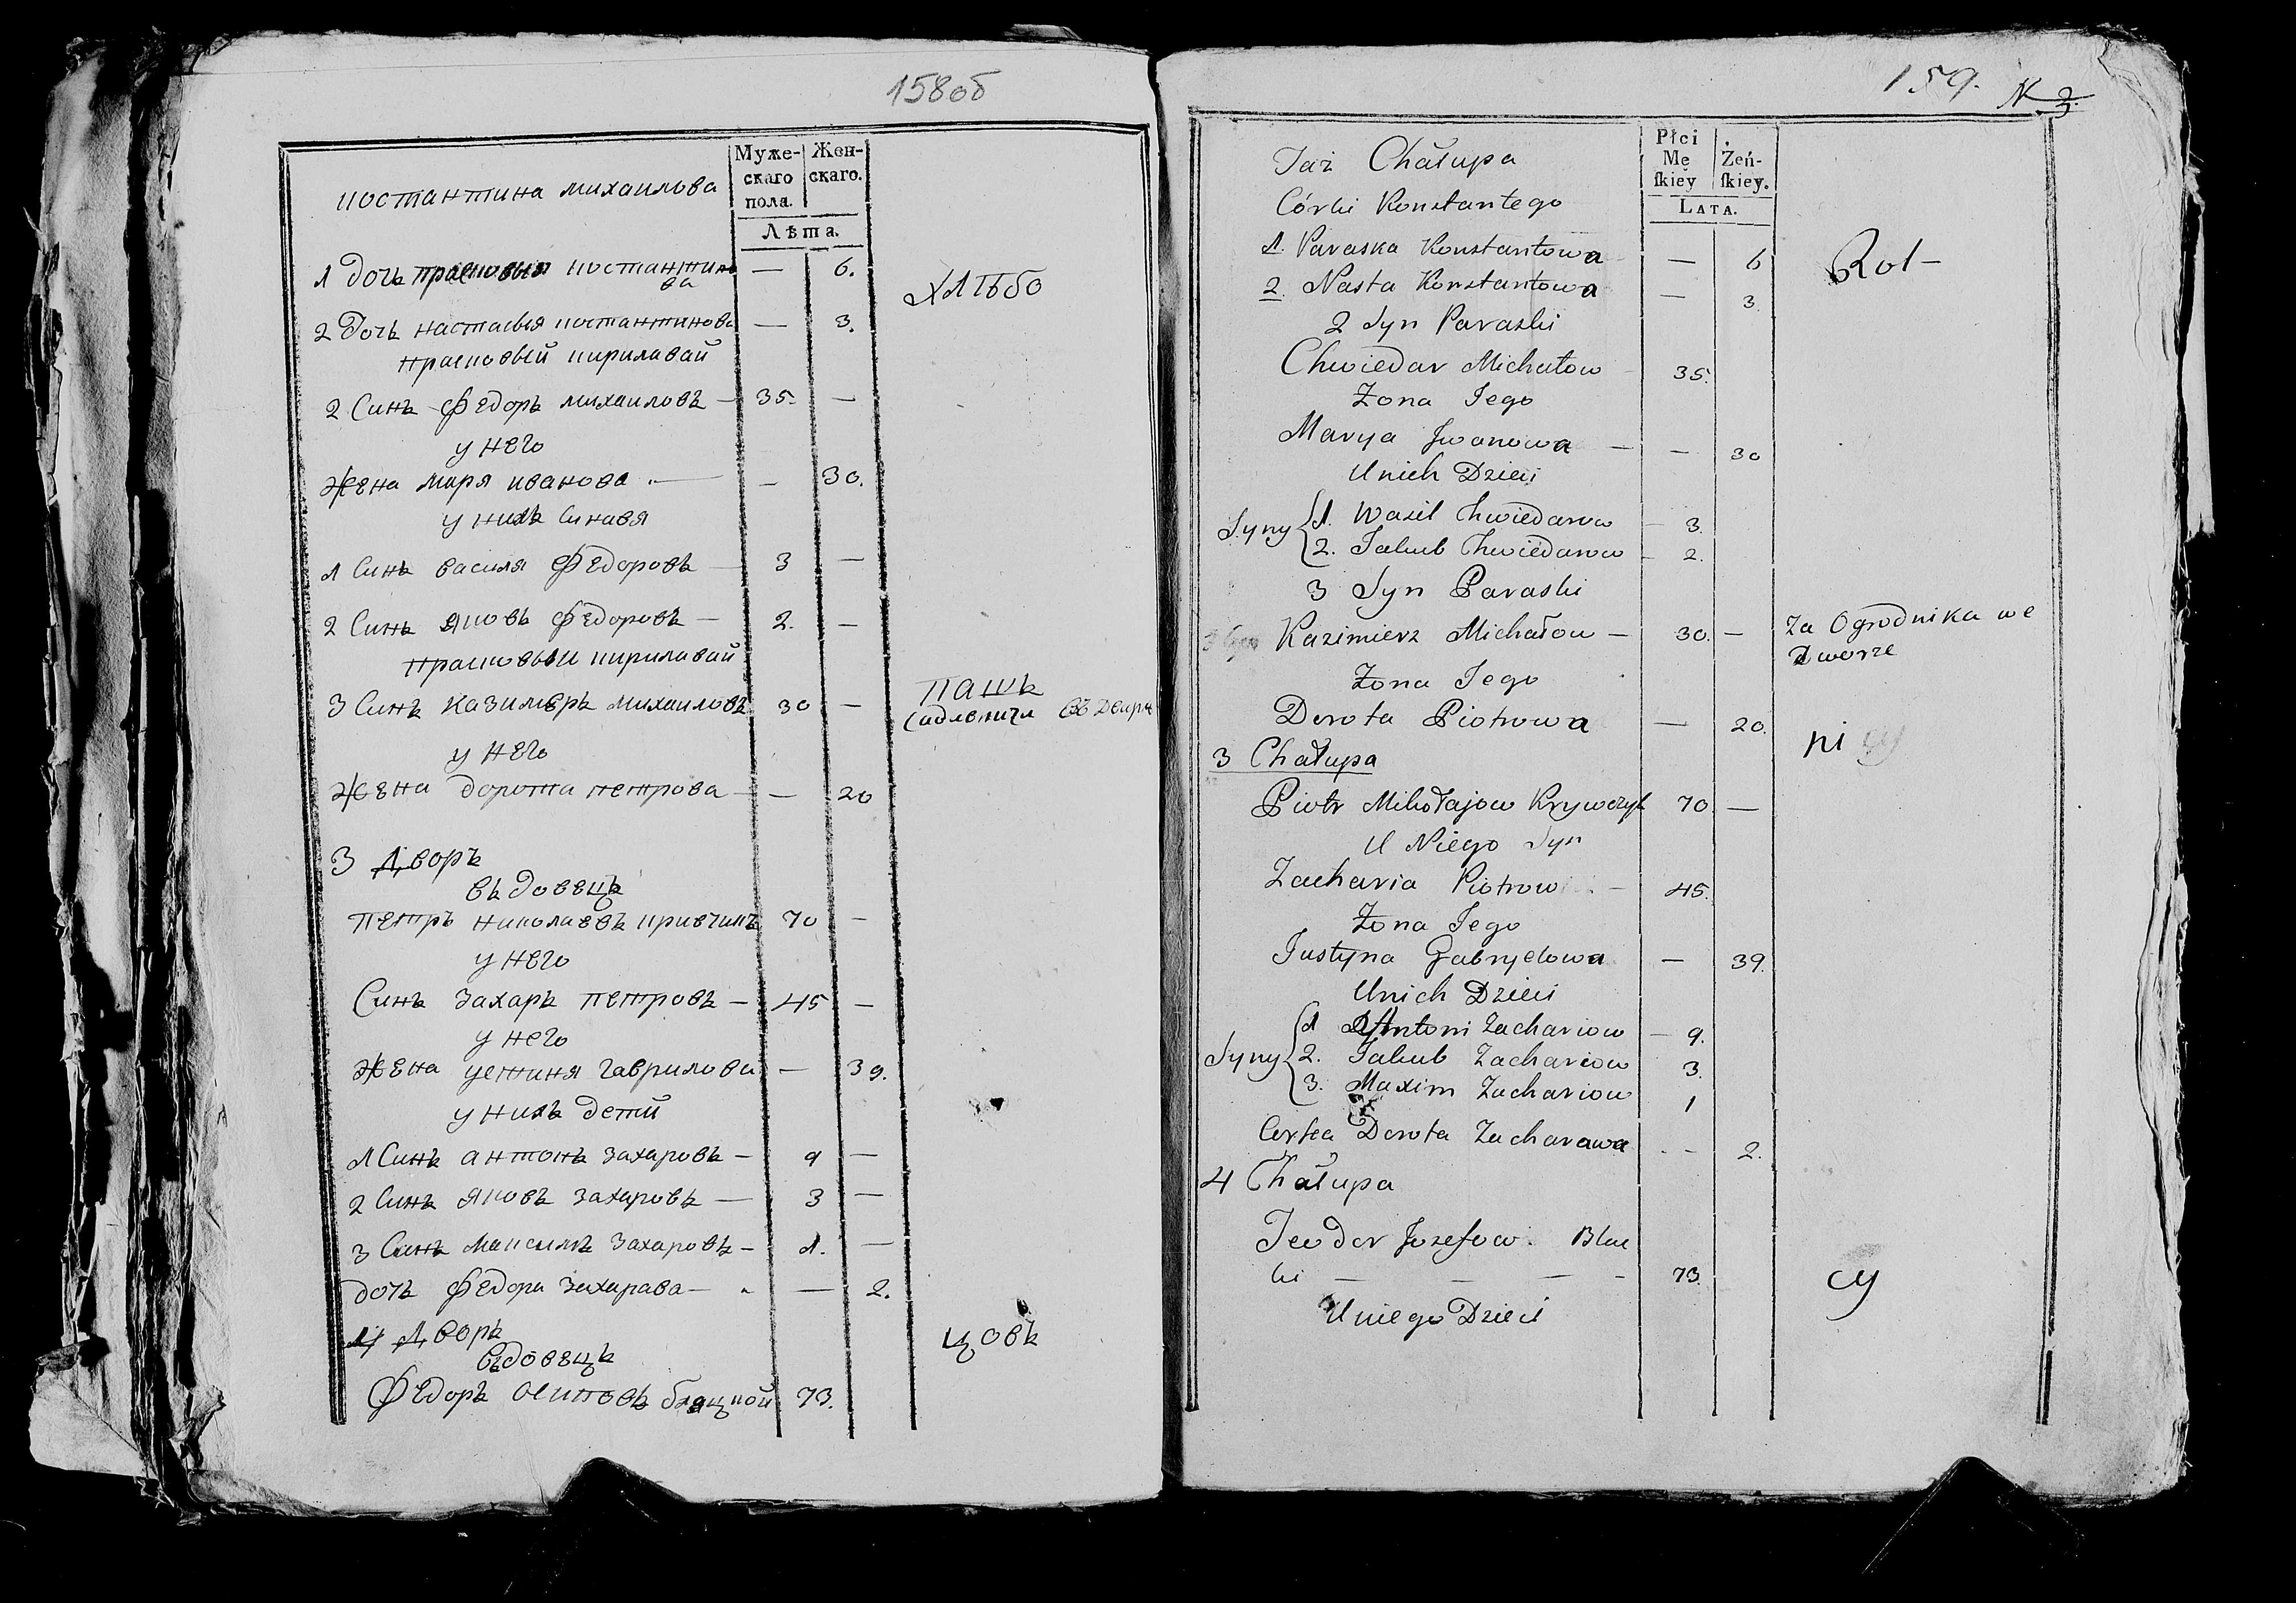 158об
Муже- Жен-
скаго скаго.
пола.
Лѣта.
костантина михаилова
1 дочь прасковья костантино — 6.
ва
хлѣбо
2 дочь настасья костантинова — 3.
прасковьи кириловай
2 Синъ Федоръ михаиловъ — 35. —
у него
Жена маря иванова — — 30.
у нихъ синавя
1 Синъ василя Федоровъ — 3 —
2 Синъ яковъ Федоровъ — 2. —
прасковьи кириловай
3 Синъ казимѣръ михаиловъ 30 —
у него
Жена доротта петрова — — 20
3 Дворъ
въдовецъ
Петръ николаевъ кривчикъ 70 —
у него
Синъ Захаръ петровъ — 45 —
у него
Жена устиня гаврилова — 39.
у нихъ дети
1 Синъ антонъ захаровъ — 9 —
2 Синъ яковъ захаровъ — 3 —
3 Синъ максимъ захаровъ — 1. —
дочъ Федора захарава — — 2.
4 Дворъ
въдовецъ
цовъ
Федоръ осиповъ блацкой 73.
159. N 3.
Płci
Mę Żeń-
ſkiey ſkiey.
Lata.
Taż Chałupa
Córki Konstantego
1. Paraska Konstantowa — 6
Rol-
2. Nasta Konstantowa — 3.
2 Syn Paraski
Chwiedar Michałow 35.
Żona Jego
Marya Jwanowa — — 30
U nich Dzieci
Syny 1. Wasil Chwiedarow — 3.
2. Jakub Chwiedarow — 2.
3 Syn Paraski
Kazimierz Michałow — 30. — Za Ogrodnika we
Dworze
Żona Jego
Dorota Piotrowa — 20.
ni
3 Chałupa
Piotr Mikołajow Krywczyk 70. —
U Niego Syn
Zacharia Piotrow — 45.
Żona Jego
Justyna Gabryelowa — 39.
U nich Dzieci
Syny 1 Antoni Zachariow — 9.
2. Jakub Zachariow 3.
3. Maxim Zachariow 1
Corka Dorota Zacharawa - - 2.
4 Chałupa
Teodor Jozefow Blac
ki — — — - 73.
cy
U niego Dzieci